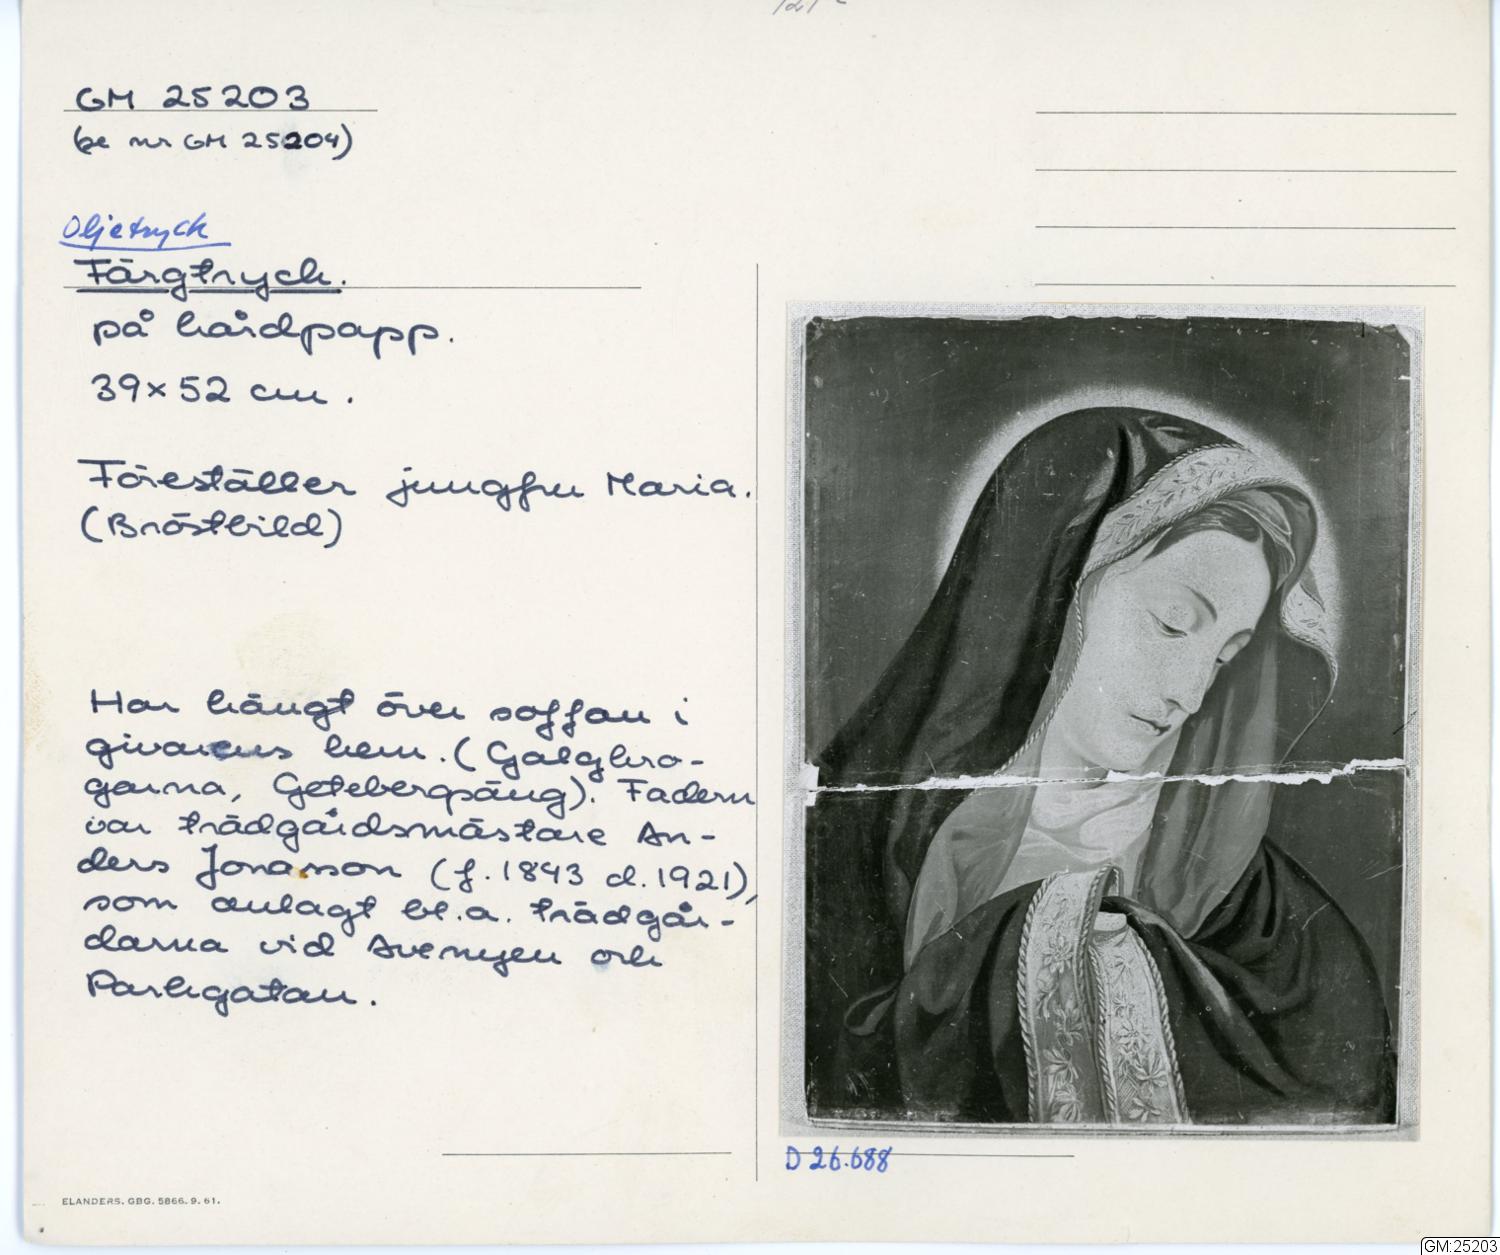 GM 25203
(se nr GM 25204)
Oljetryck
Färgtryck.
på hårdpapp.
39x52 cm.
Föreställer jungfru Maria.
(Bröstbild)
Har hängt över soffan i
givarens hem. (Galgkro-
garna, Getebergsäng). Fadern
var trädgårdsmästare An-
ders Jonasson (f. 1843 d. 1921),
som anlagt bl.a. trädgår-
darna vid Avenyen och
Parkgatan.
D 26.688
ELANDERS. GBG. 5866. 9. 61.
GM:25203